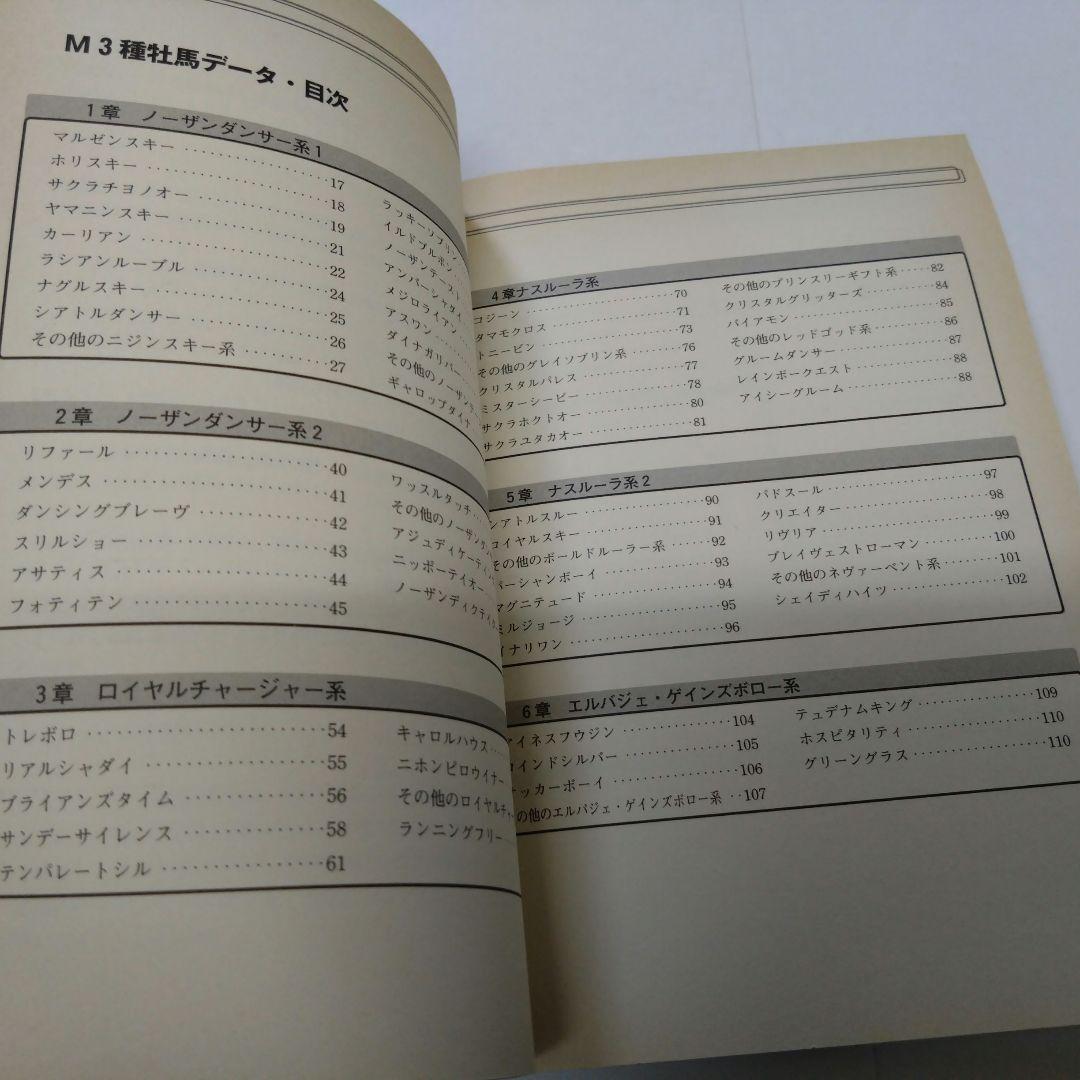 M3種牡馬データ・目次
1章 ノーザンダンサー系1
マルゼンスキー ‥‥‥‥‥‥17
ホリスキー ‥‥‥‥‥‥18
サクラチヨノオー ‥‥‥‥‥‥19
ヤマニンスキー ‥‥‥‥‥‥21
カーリアン ‥‥‥‥‥‥22
ラシアンルーブル ‥‥‥‥‥‥24
ナグルスキー ‥‥‥‥‥‥25
シアトルダンサー ‥‥‥‥‥‥26
その他のニジンスキー系 ‥‥‥‥‥‥27
ラッキーソブリン
イルドブルボン
ノーザンテースト
アンバーシャダイ
メジロライアン
アスワン
ダイナガリバー
その他のノーザンテー
ギャロップダイナ
2章 ノーザンダンサー系2
リファール ‥‥‥‥‥‥40
メンデス ‥‥‥‥‥‥41
ダンシングブレーヴ ‥‥‥‥‥‥42
スリルショー ‥‥‥‥‥‥43
アサティス ‥‥‥‥‥‥44
フォティテン ‥‥‥‥‥‥45
ワッスルタッチ
その他のノーザンダン
アジュディケーティン
ニッポーテイオー
ノーザンディクテイ
3章 ロイヤルチャージャー系
トレボロ ‥‥‥‥‥‥54
リアルシャダイ ‥‥‥‥‥‥55
ブライアンズタイム ‥‥‥‥‥‥56
サンデーサイレンス ‥‥‥‥‥‥58
テンパレートシル ‥‥‥‥‥‥61
キャロルハウス
ニホンピロウイナー
その他のロイヤルチャー
ランニングフリー
4章ナスルーラ系
コジーン ‥‥‥‥‥‥70
タマモクロス ‥‥‥‥‥‥71
トニービン ‥‥‥‥‥‥73
その他のグレイソブリン系 ‥‥‥‥76
クリスタルパレス ‥‥‥‥‥‥77
ミスターシービー ‥‥‥‥‥‥78
サクラホクトオー ‥‥‥‥‥‥80
サクラユタカオー ‥‥‥‥‥‥81
その他のプリンスリーギフト系 ‥‥82
クリスタルグリッターズ ‥‥‥‥84
バイアモン ‥‥‥‥‥‥85
その他のレッドゴッド系 ‥‥‥‥86
グルームダンサー ‥‥‥‥‥‥87
レインボークエスト ‥‥‥‥‥‥88
アイシーグルーム ‥‥‥‥‥‥88
5章 ナスルーラ系2
シアトルスルー ‥‥‥‥‥‥90
ロイヤルスキー ‥‥‥‥‥‥91
その他のボールドルーラー系 ‥‥‥92
パーシャンボーイ ‥‥‥‥‥‥93
マグニテュード ‥‥‥‥‥‥94
ミルジョージ ‥‥‥‥‥‥95
イナリワン ‥‥‥‥‥‥96
パドスール ‥‥‥‥‥‥97
クリエイター ‥‥‥‥‥‥98
リヴリア ‥‥‥‥‥‥99
ブレイヴェストローマン ‥‥‥‥100
その他のネヴァーベント系 ‥‥‥‥101
シェイディハイツ ‥‥‥‥‥‥102
6章 エルバジェ・ゲインズボロー系
アイネスフウジン ‥‥‥‥‥‥104
ウインドシルバー ‥‥‥‥‥‥105
ッカーボーイ ‥‥‥‥‥‥106
の他のエルバジェ・ゲインズボロー系 ‥107
テュデナムキング ‥‥‥‥‥‥109
ホスピタリティ ‥‥‥‥‥‥110
グリーングラス ‥‥‥‥‥‥110